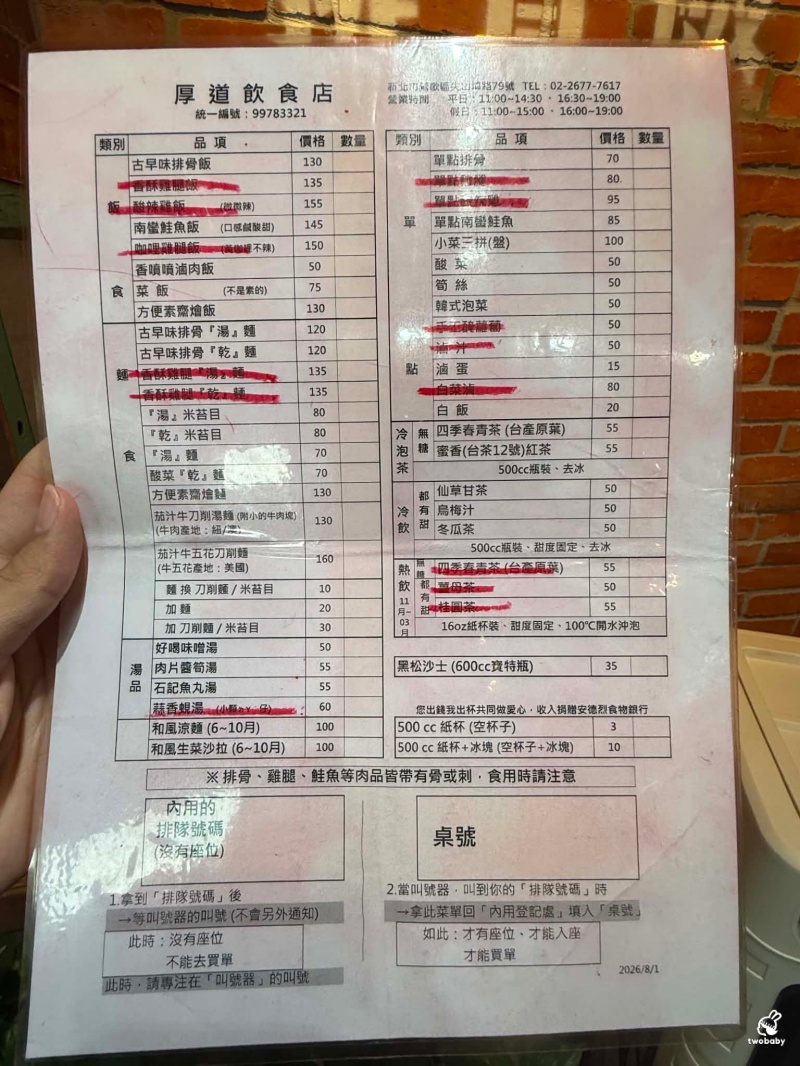 厚道飲食店
統一編號：99783321
79號 TEL：02-2677-7617
營業時間 平日：11:00~14:30 、 16:30~19:00
假日：11:00~15:00 、 16:00~19:00
類別 品項 價格 數量
飯食
古早味排骨飯 130
香酥雞腿飯 135
酸辣雞飯 (微微辣) 155
南蠻鮭魚飯 (口感鹹酸甜) 145
咖哩雞腿飯 (黃咖哩不辣) 150
香噴噴滷肉飯 50
菜飯 (不是素的) 75
方便素齋燴飯 130
麵食
古早味排骨『湯』麵 120
古早味排骨『乾』麵 120
香酥雞腿『湯』麵 135
香酥雞腿『乾』麵 135
『湯』米苔目 80
『乾』米苔目 80
『湯』麵 70
酸菜『乾』麵 70
方便素齋燴麵 130
茄汁牛刀削湯麵 (附小的牛肉塊) 130
(牛肉產地：紐/澳)
茄汁牛五花刀削麵 160
(牛五花產地：美國)
麵 換 刀削麵／米苔目 10
加 麵 20
加 刀削麵／米苔目 30
湯品
好喝味噌湯 50
肉片醬筍湯 55
石記魚丸湯 55
蒜香蜆湯 60
和風涼麵 (6~10月) 100
和風生菜沙拉 (6~10月) 100
類別 品項 價格 數量
單點
單點排骨 70
單點雞腿 80
單點 95
單點南蠻鮭魚 85
小菜三拼(盤) 100
酸菜 50
筍絲 50
韓式泡菜 50
手工醃蘿蔔 50
滷汁 50
滷蛋 15
白菜滷 80
白飯 20
冷泡茶 無糖
四季春青茶 (台產原葉) 55
蜜香(台茶12號)紅茶 55
500cc瓶裝、去冰
冷飲 都有甜
仙草甘茶 50
烏梅汁 50
冬瓜茶 50
500cc瓶裝、甜度固定、去冰
熱飲 11月~03月
無糖 四季春青茶 (台產原葉) 55
都有甜
薑母茶 50
桂圓茶 55
16oz紙杯裝、甜度固定、100℃開水沖泡
黑松沙士 (600cc寶特瓶) 35
您出錢我出杯共同做愛心，收入捐贈安德烈食物銀行
500 cc 紙杯 (空杯子) 3
500 cc 紙杯＋冰塊 (空杯子＋冰塊) 10
※ 排骨、雞腿、鮭魚等肉品皆帶有骨或刺，食用時請注意
內用的
排隊號碼
(沒有座位)
桌號
1.拿到「排隊號碼」後
→等叫號器的叫號 (不會另外通知)
此時：沒有座位
不能去買單
此時，請專注在「叫號器」的叫號
2.當叫號器，叫到你的「排隊號碼」時
→拿此菜單回「內用登記處」填入「桌號」
如此：才有座位、才能入座
才能買單
2026/8/1
twobaby